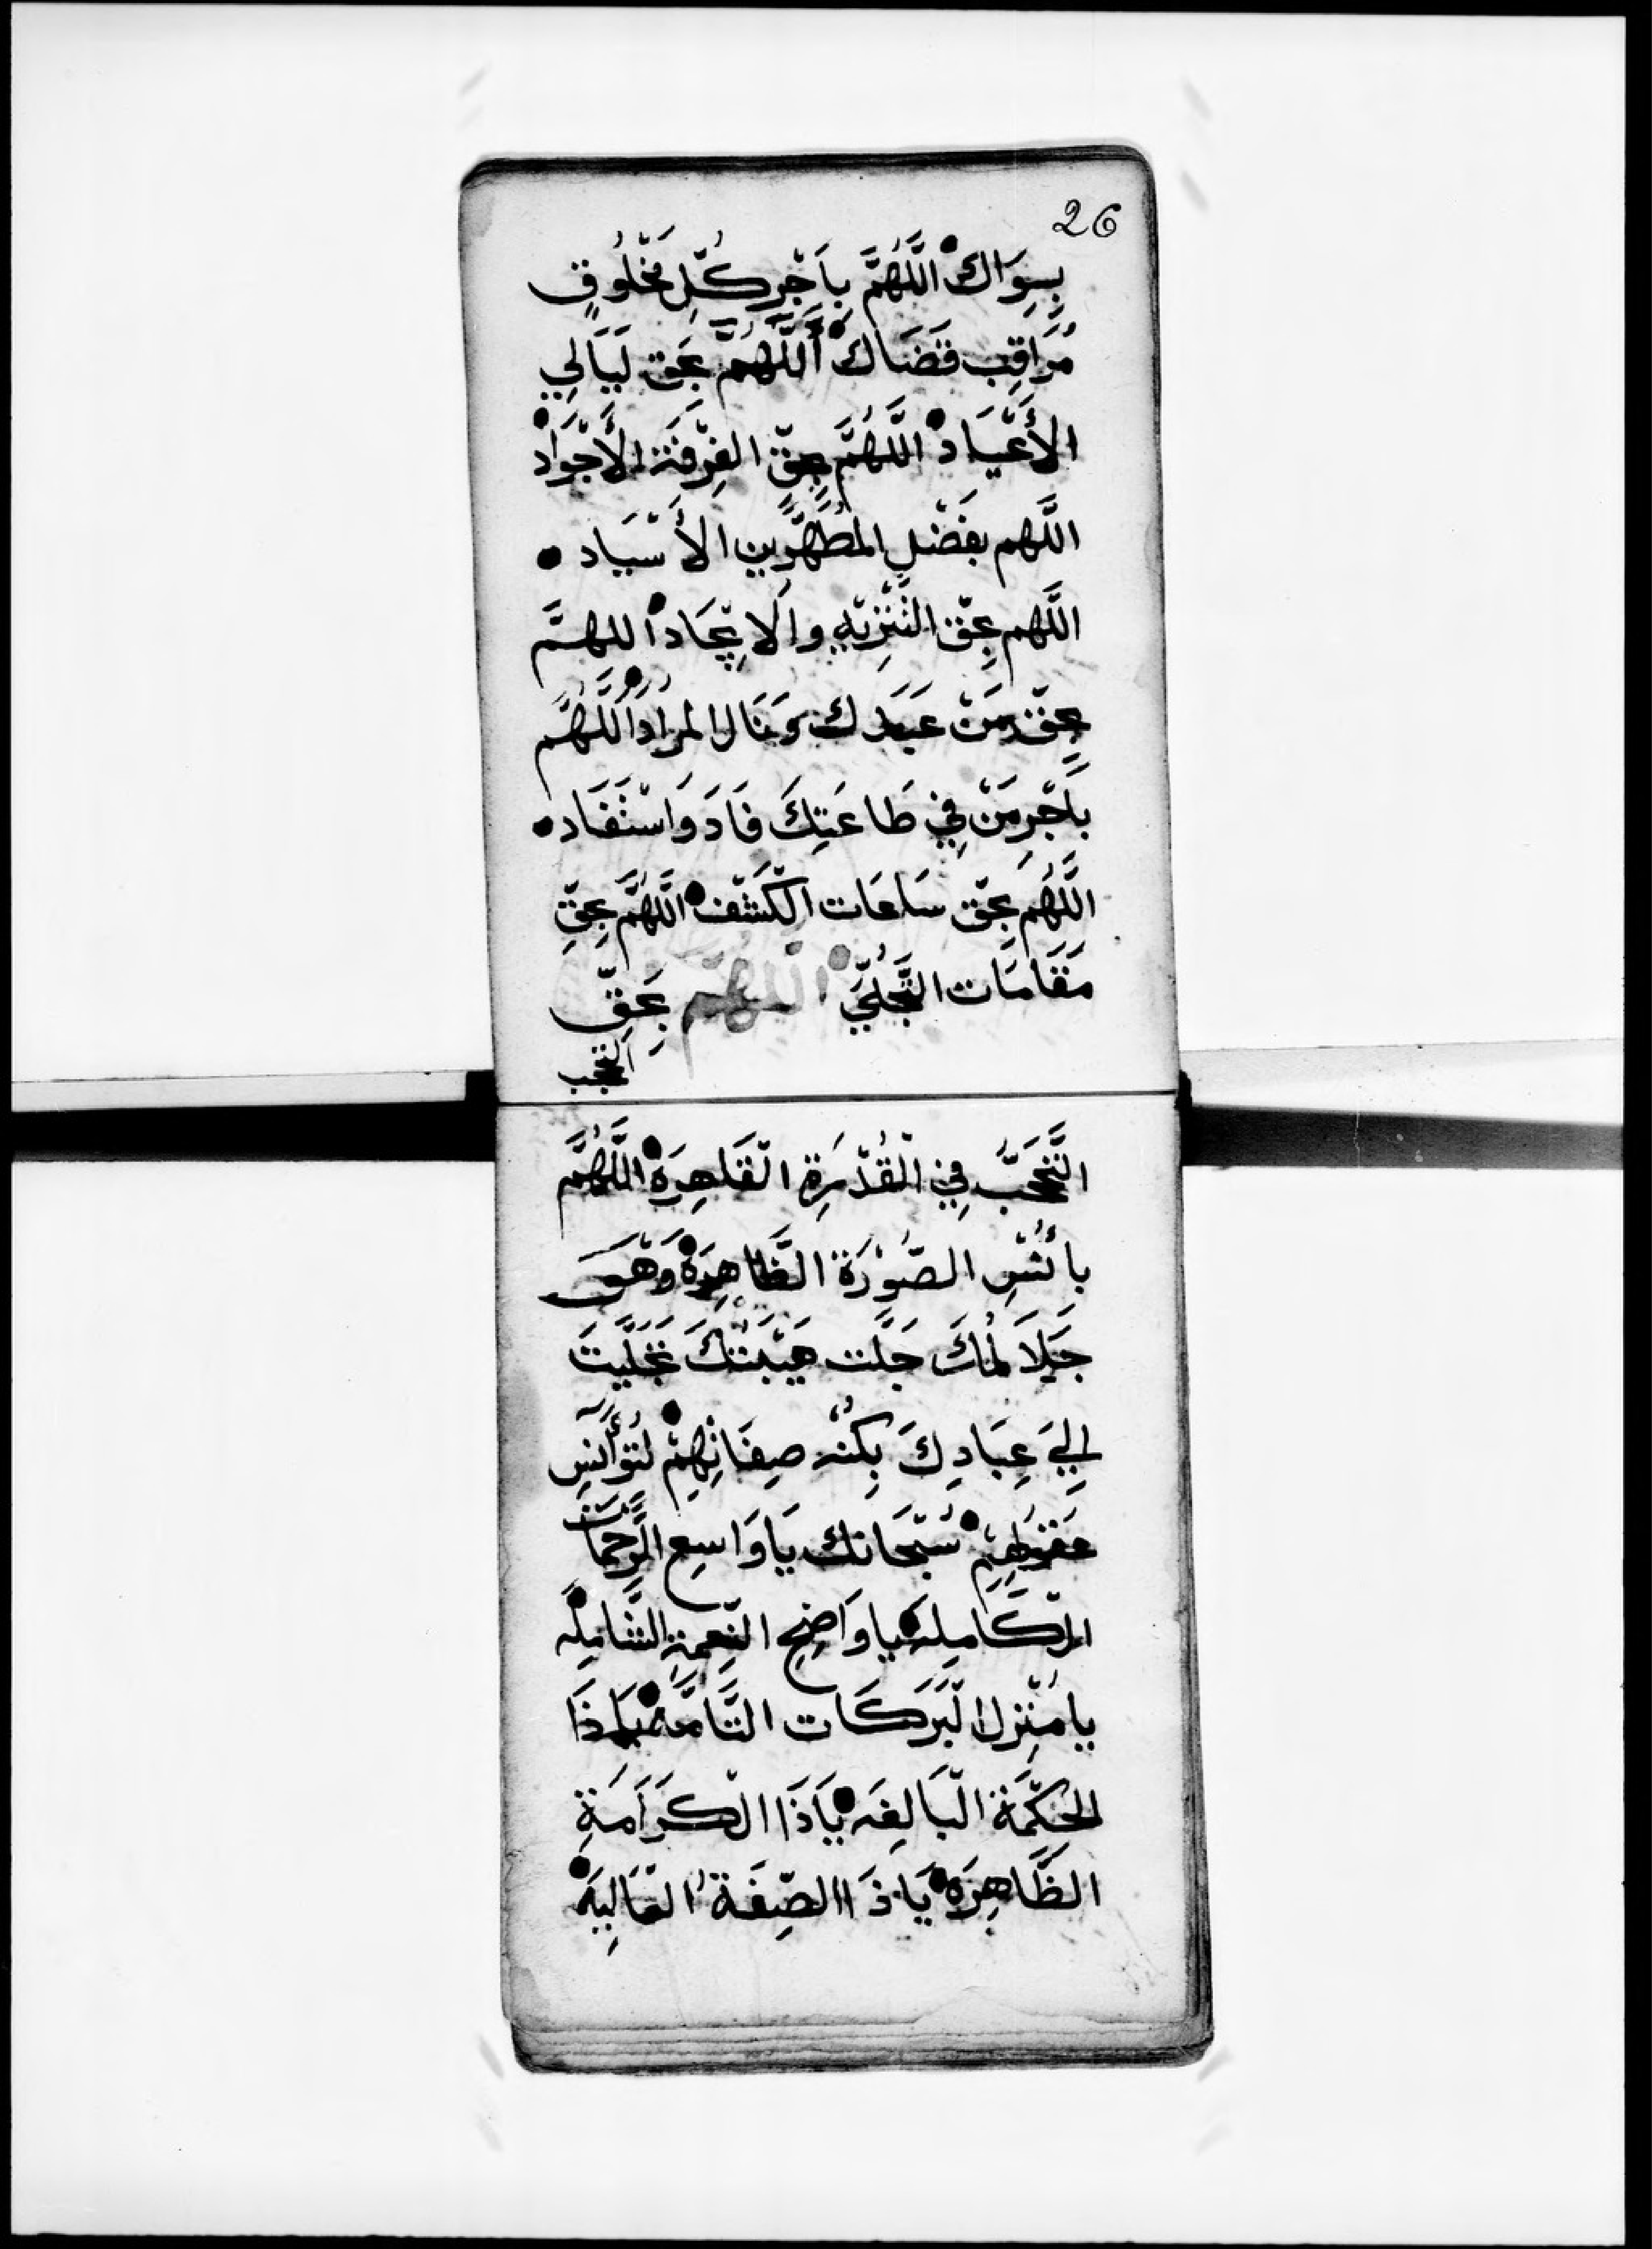 26
بِسِوَاكْ اللَّهُمَّ بِأَجْرِ كُلِّ مَخْلُوقٍ
مُرَاقِبِ قَضَاكْ أَللَّهُمَّ بِحَق لَيَالِي
الأَعْيَادْ اللَّهُمَّ بِحَقِّ الفِرْقَةِ الأَجْوَادْ
اللَّهم بفَضْلِ المُطَهَّرِين الأَسْيَاد
اللَّهم بِحَقّ التَّنْزِيْهِ وَالإِيْجَادْ اللهمَّ
بِحَقّ مَنْ عَبَدكَ وَنَال المُرَادْ اللَّهُمَّ
بِأَجْرِ مَنْ فِي طَاعَتِكَ فَادَ وَاسْتَفَاد
اللَّهُمَّ بِحَقّ سَاعَات الْكَشْف اللَّهُمَّ بِحَقِّ
مَقَامَات التَّجَلِّي اللهمّ بِحَقِّ
التحجب
التَّحَجُّبِ فِي الْقُدْرَةِ الْقَاهِرَةْ اللَّهُمَّ
بأُنْسِ الصُّوْرَة الظَّاهِرَةْ وَهْوَ
جَلاَلُكَ جَلَّت هَيْبَتُكَ تَجَلَّيْتَ
إِلَيَ عِبَادِكَ بِكُنْهِ صِفَاتِهِمْ لتُؤَآنِسِ
عقولهِمْ سُبْحَانك يَاوَاسِع الرَّحْمَات
الْكَامِلَه ياوَاضِح النِّعمَة الشَّامِلَه
يامُنْزِل الْبَرَكَات التَّامَّه يَاذَا
الحِكْمَة الْبَالِغَه يَاذَا الْكَرَامَةِ
الظَّاهِرَه يَاذَا الصِّفَة العَالِيَه